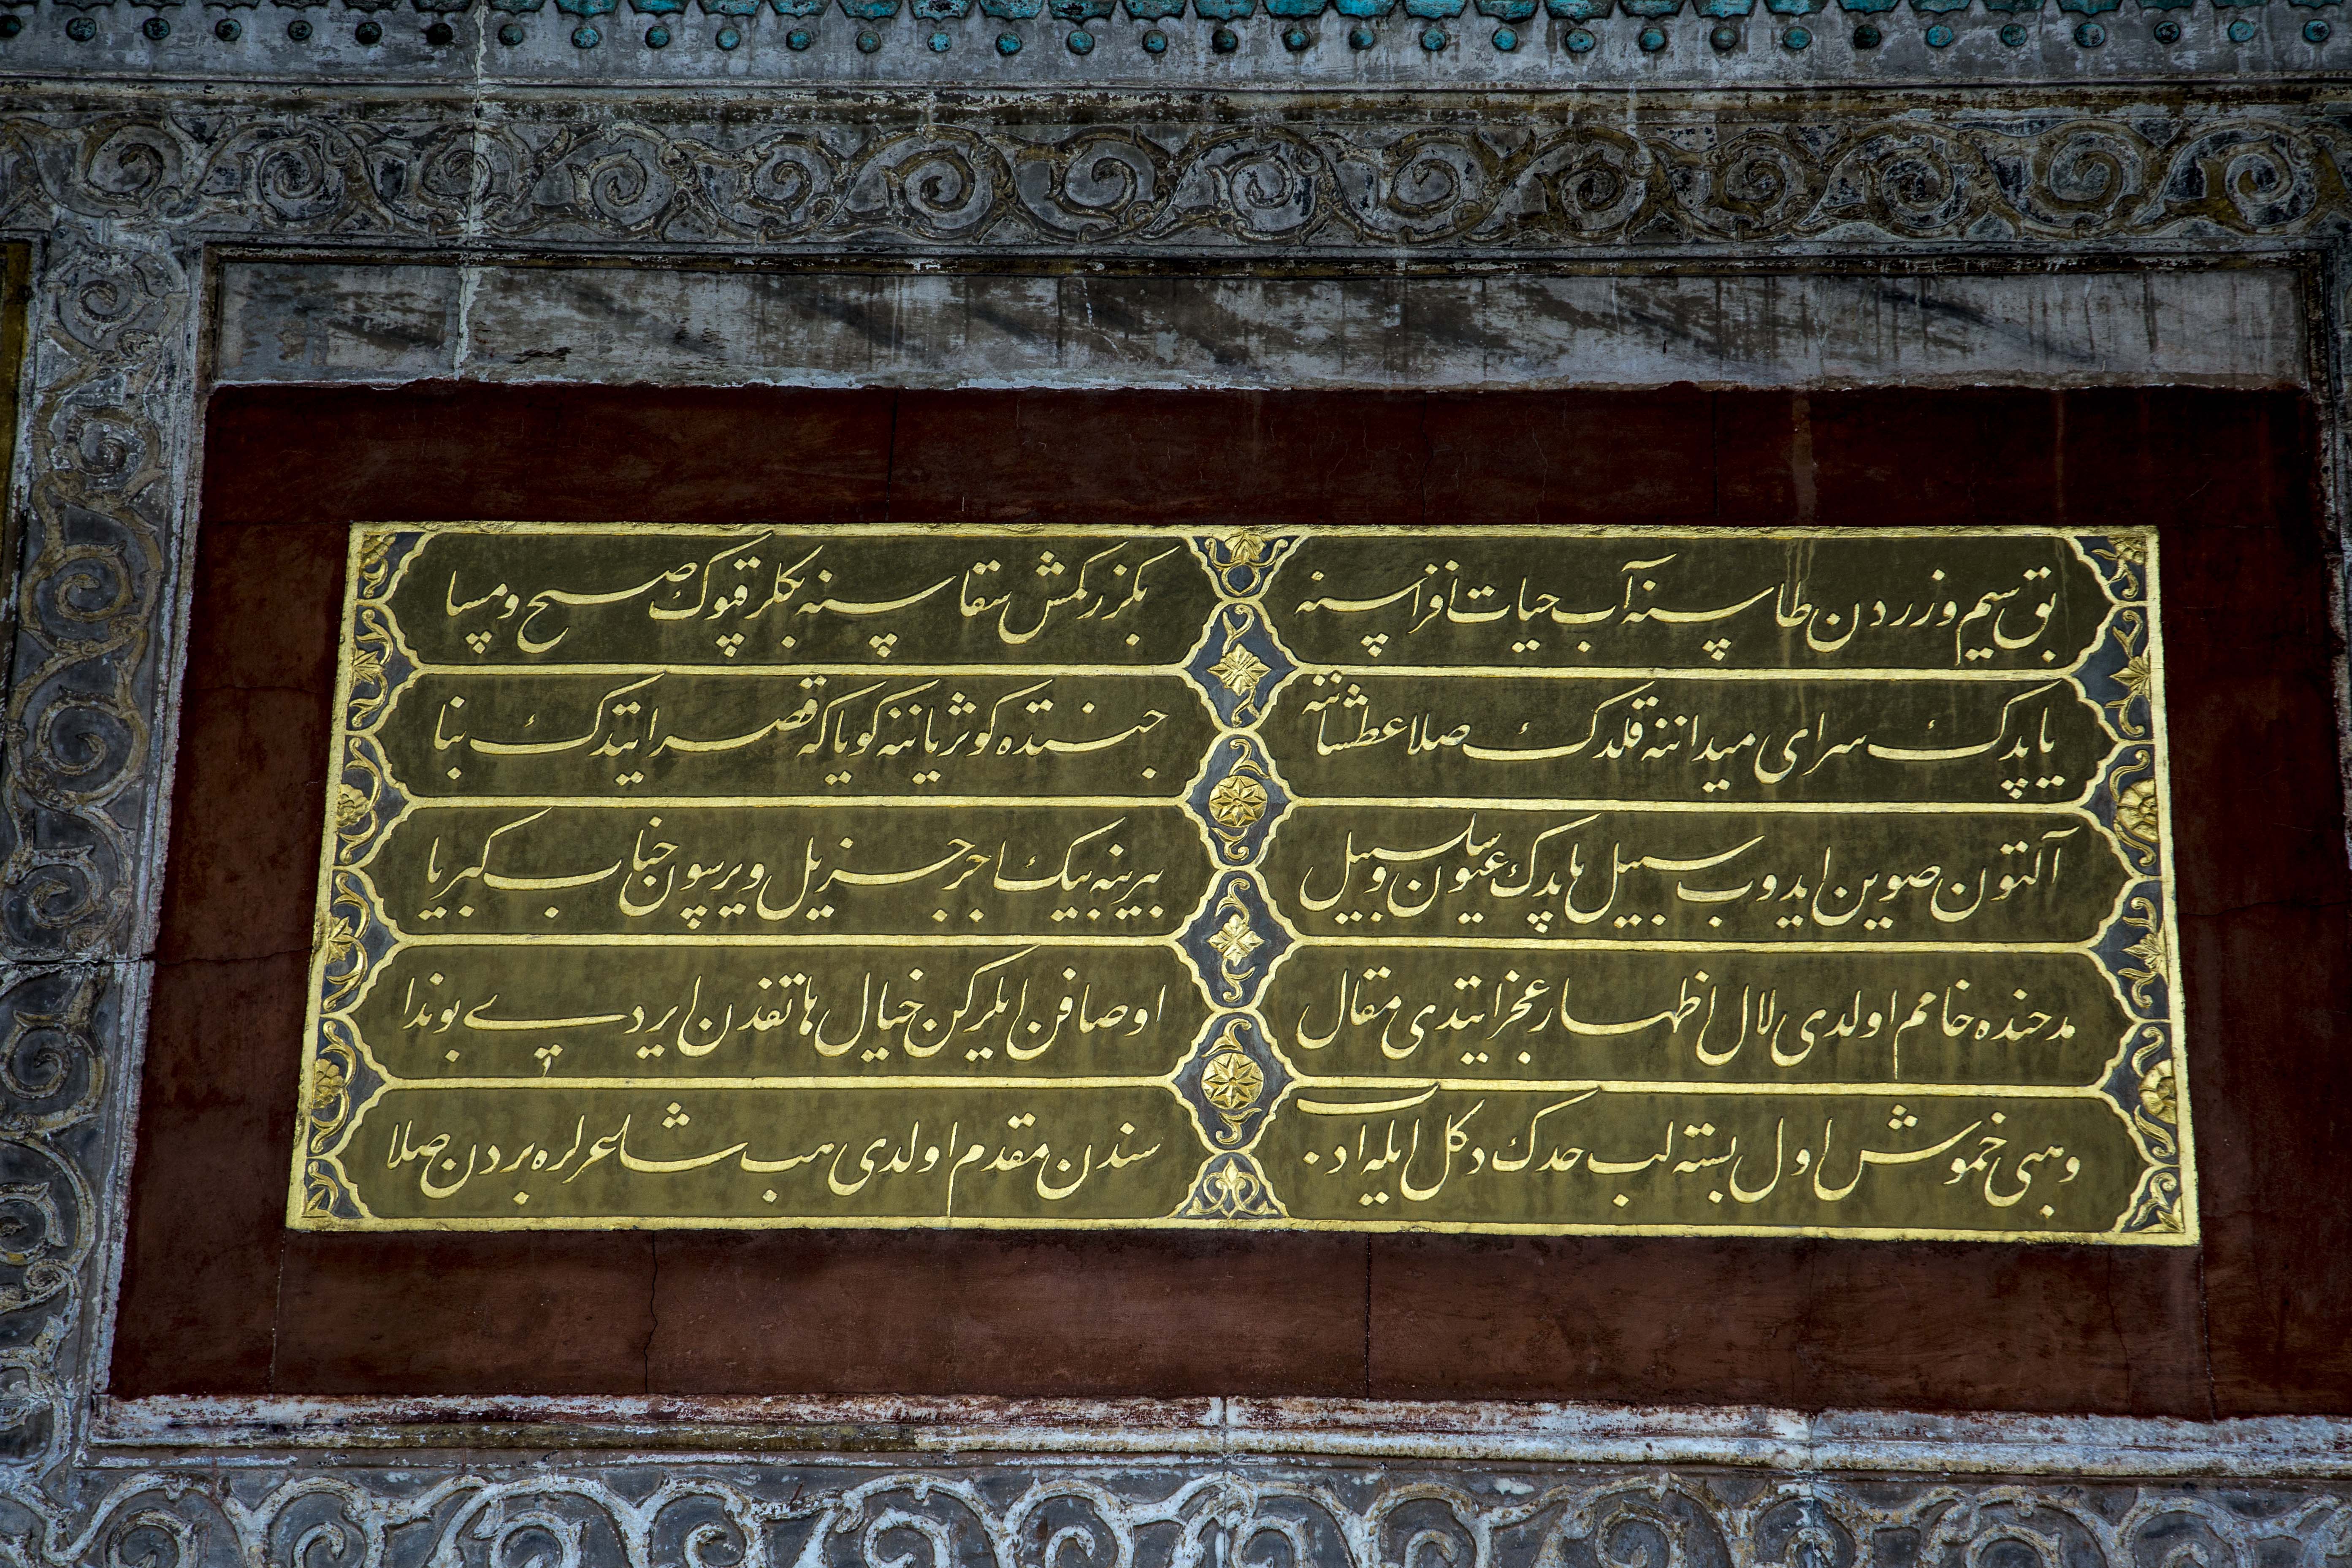 بق سیم و زردن طاسنه آب حیات افزاسنه
بکزر کمش سقاسنه بکلر قپوک صبح و مسا
یاپدک سرای میداننه قلدک صلا عطشاننه
جنتده کوثر یاننه کویا که قصر ایتدک بنا
آلتون صوین ایدوب سبیل یاپدک عیون و سلسبیل
بیرینه بیک اجر جزیل ویرسون جناب کبریا
مدحنده خامم اولدی لال اظهار عجز ایتدی مقال
اوصافن ایلرکن خیال هاتفدن ایردی بو ندا
وهبی خموش اول بسته لب حدک دکل ایله ادب
سندن مقدم اولدی هب شاعرلره بردن صلا